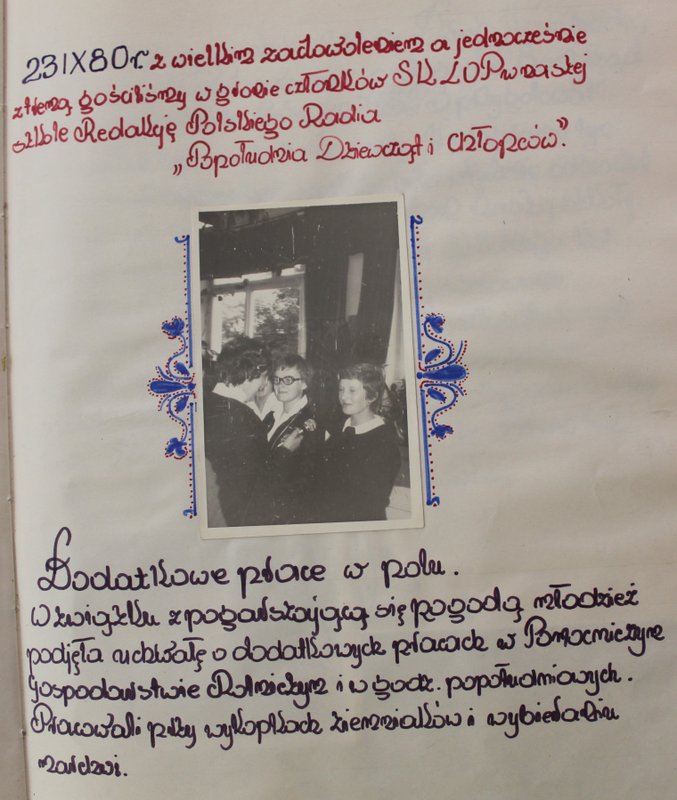 23 IX 80 r z wielkim zadowoleniem a jednocześnie
z tremą gościliśmy w gronie członków SK LOP w naszej
szkole Redakcję Polskiego Radia
„Popołudnia Dziewcząt i Chłopców."
Dodatkowe prace w polu.
W związku z pogarszającą się pogodą młodzież
podjęła uchwałę o dodatkowych pracach w Pomocniczym
Gospodarstwie Rolniczym i w godz. popołudniowych.
Pracowali przy wykopkach ziemniaków i wybieraniu
marchwi.